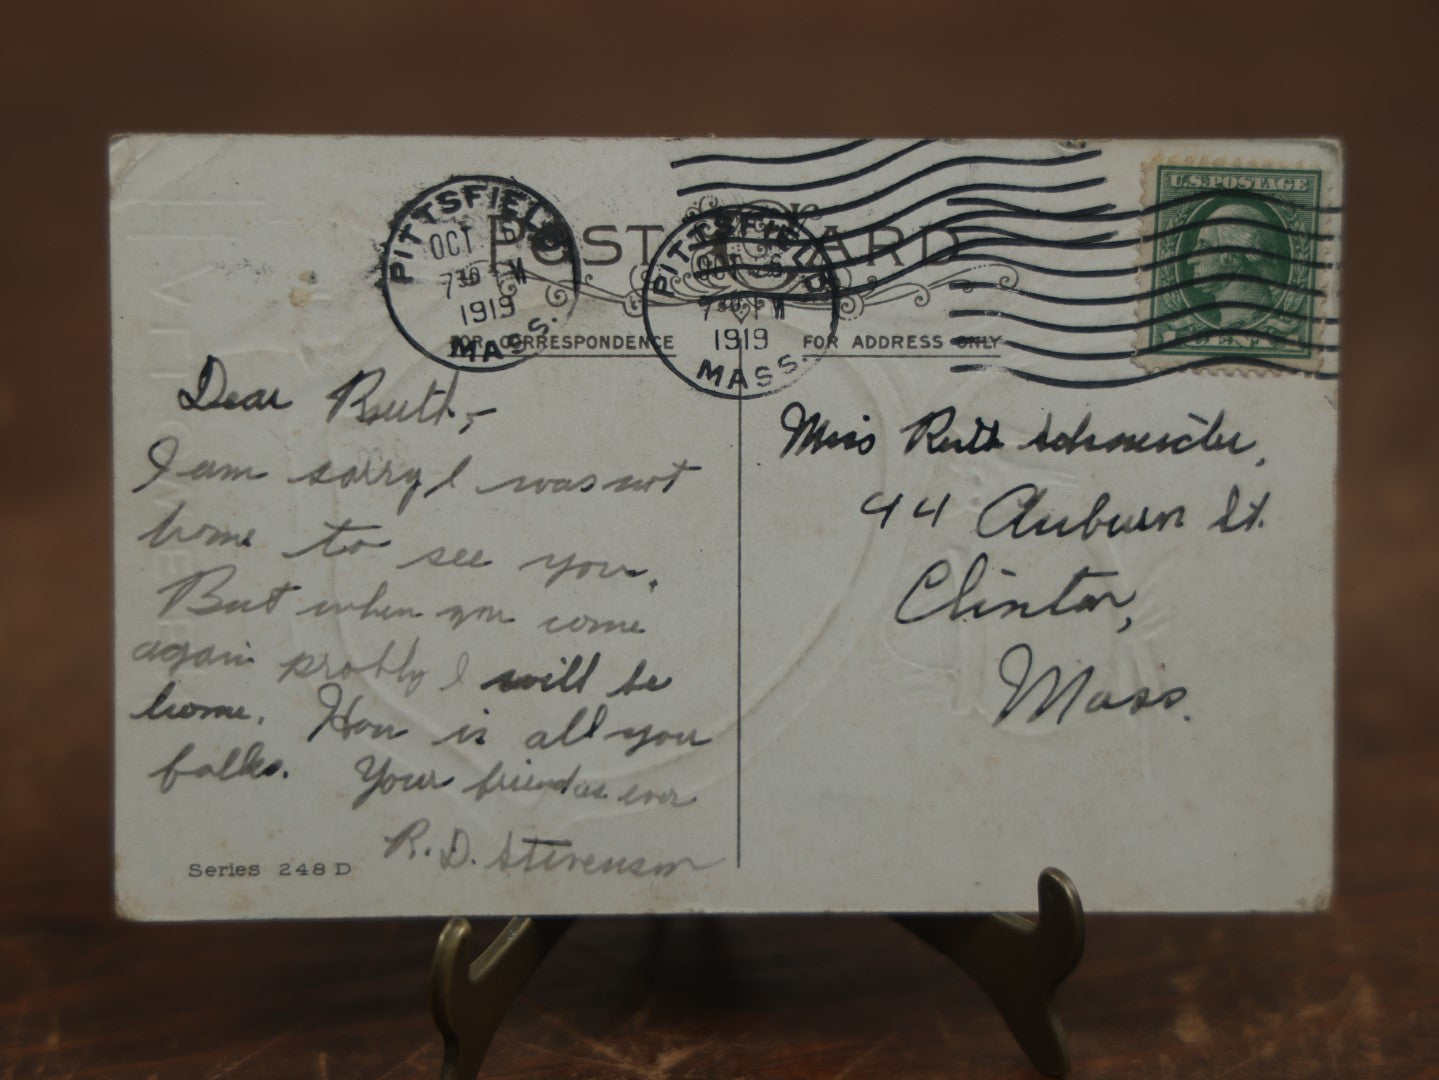 PITTSFIELD
OCT 6
7 30 PM
1919
MASS.
PITTSFIELD
OCT 6
7 30 PM
1919
MASS.
U.S. POSTAGE
POST CARD
FOR CORRESPONDENCE
FOR ADDRESS ONLY
Dear Ruth,-
I am sorry I was not
home to see you.
But when you come
again probly I will be
home. How is all you
folks. Your friend as ever
R. D. Stevenson
Series 248 D
Miss Ruth
44 Auburn St.
Clinton,
Mass.